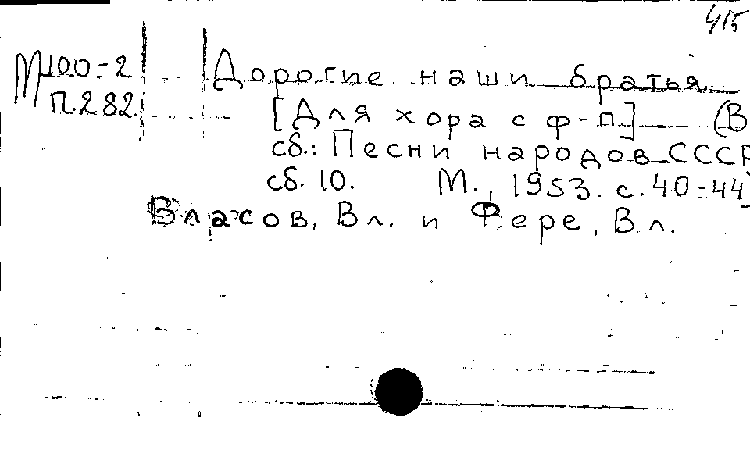 415
М100-2 Дорогие наши братья
П.282. [Для хора с ф-п] (В
сб.: Песни народов СССР
сб. 10. М., 1953. с. 40-44)
Власов, Вл. и Фере, Вл.